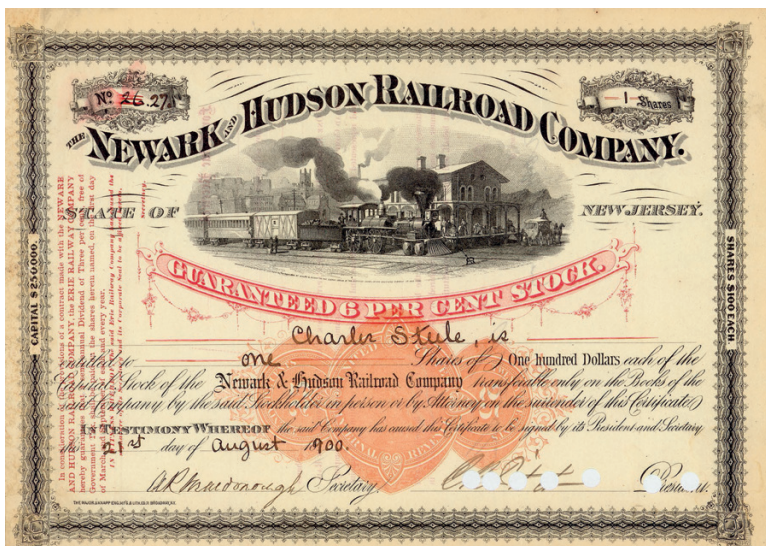 No 26.27
1 Shares
THE NEWARK AND HUDSON RAILROAD COMPANY.
STATE OF NEW JERSEY.
GUARANTEED 6 PER CENT STOCK.
CAPITAL $250,000.
SHARES $100 EACH
In consideration of the provisions of a contract made with the NEWARK
AND HUDSON RAILROAD COMPANY, the ERIE RAILWAY COMPANY
hereby guarantees annual Dividend of Three per cent, free of
Government Tax the shares herein named, on the first day
of March and each and every year.
said Erie Railway Company
and its Corporate Seal to be
Secretary.
Charles Steele, is
entitled to one Shares of One hundred Dollars each of the
Capital Stock of the Newark & Hudson Railroad Company transferable only on the Books of the
said Company by the said Stockholder in person or by Attorney on the surrender of this Certificate
IN TESTIMONY WHEREOF the said Company has caused this Certificate to be signed by its President and Secretary
the 21st day of August 1900.
A.R. Macdonough Secretary President.